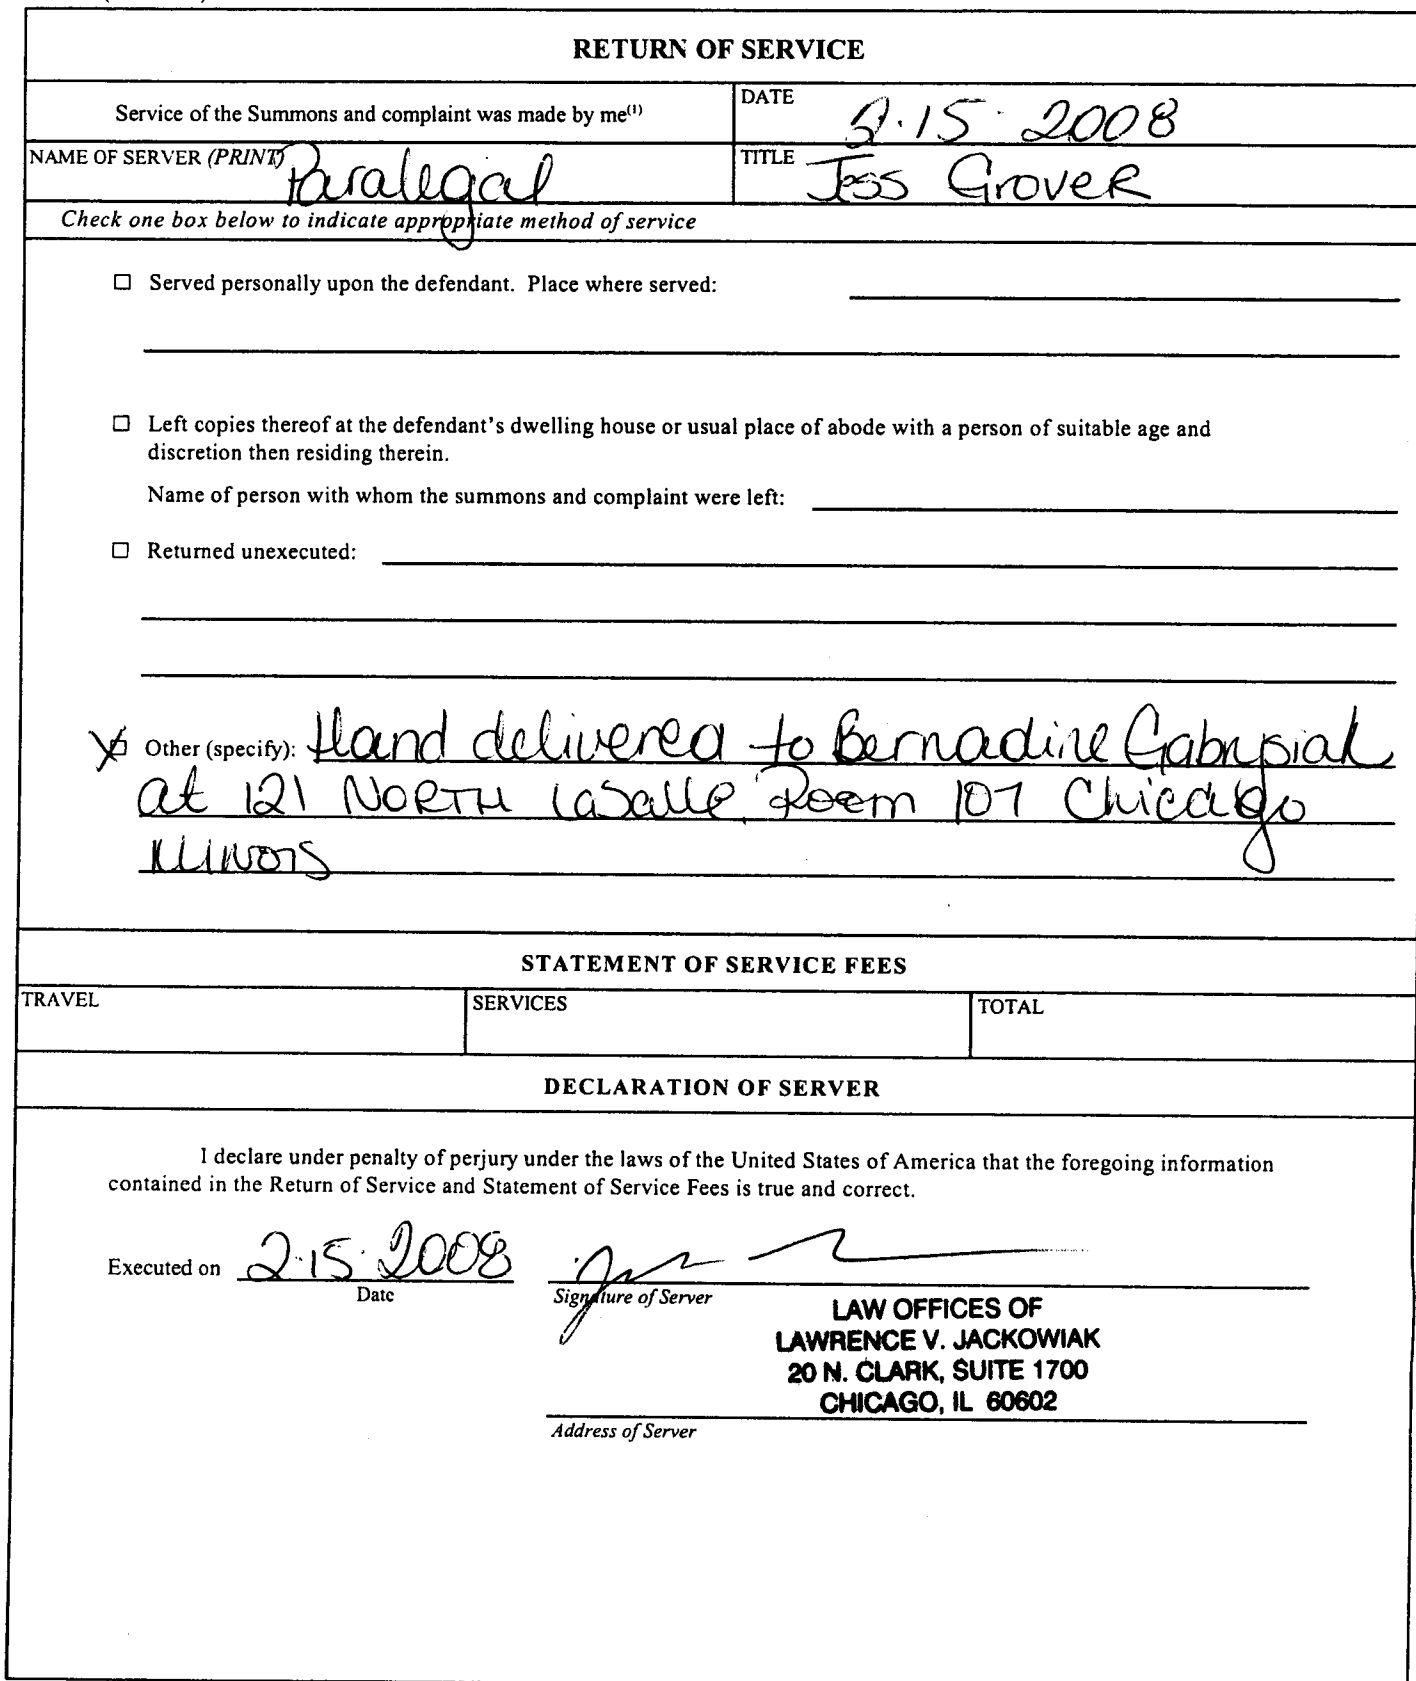 RETURN OF SERVICE
Service of the Summons and complaint was made by me(1)
DATE 2·15·2008
NAME OF SERVER (PRINT) Paralegal
TITLE Jess Grover
Check one box below to indicate appropriate method of service
☐ Served personally upon the defendant. Place where served:
☐ Left copies thereof at the defendant's dwelling house or usual place of abode with a person of suitable age and
discretion then residing therein.
Name of person with whom the summons and complaint were left:
☐ Returned unexecuted:
Other (specify): Hand delivered to Bernadine Gabrysiak
at 121 NORTH LaSalle Room 107 Chicago
Illinois
STATEMENT OF SERVICE FEES
TRAVEL
SERVICES
TOTAL
DECLARATION OF SERVER
I declare under penalty of perjury under the laws of the United States of America that the foregoing information
contained in the Return of Service and Statement of Service Fees is true and correct.
Executed on 2·15·2008
Date
Signature of Server
LAW OFFICES OF
LAWRENCE V. JACKOWIAK
20 N. CLARK, SUITE 1700
CHICAGO, IL 60602
Address of Server